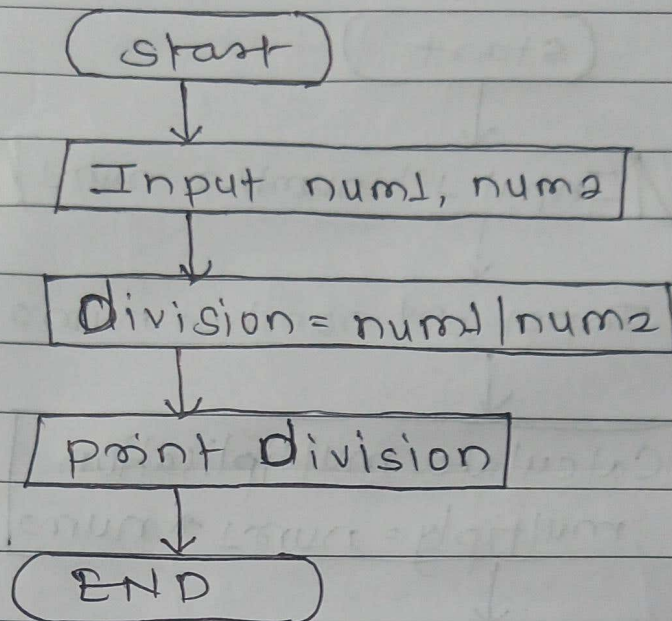 Start
Input num1, num2
division = num1 | num2
print division
END